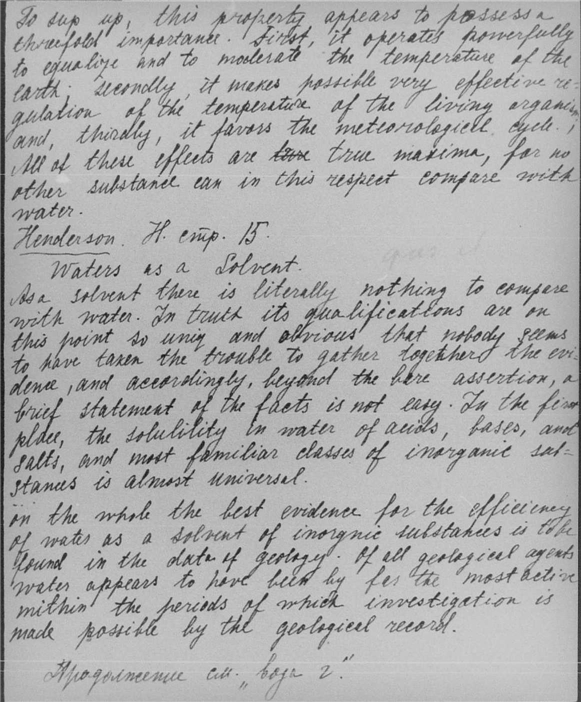 To sup up, this property appears to possess a
threefold importance. First, it operates powerfully
to equalize and to moderate the temperature of the
earth; secondly, it makes possible very effective re-
gulation of the temperature of the living organism
and, thirdly, it favors the meteorological cycle.
All of these effects are true maxima, for no
other substance can in this respect compare with
water.
Henderson. Н. стр. 15.
Waters as a Solvent.
As a solvent there is literally nothing to compare
with water. In truth its qualifications are on
this point so uniq and obvious that nobody seems
to have taken the trouble to gather together the evi-
dence, and accordingly, beyond the bere assertion, a
brief statement of the facts is not easy. In the first
place, the solulility in water of acids, bases, and
salts, and most familiar classes of inorganic sub-
stances is almost universal.
on the whole the best evidence for the efficiency
of water as a solvent of inorgnic substances is to be
found in the data of geology. Of all geological agents
water appears to have been by far the most active
within the periods of which investigation is
made possible by the geological record.
Продолжение см. „Вода 2".